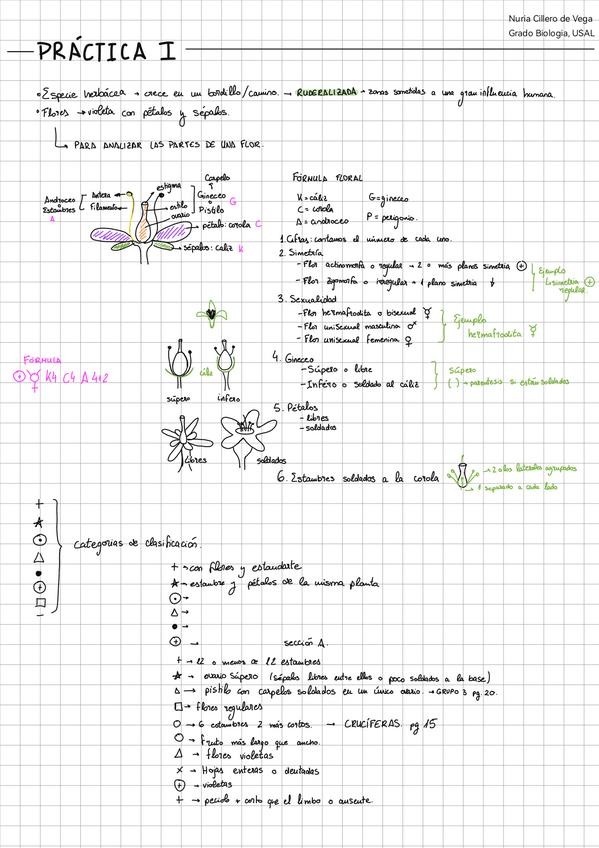 Nuria Cillero de Vega
Grado Biologia, USAL
PRÁCTICA I
• Especie herbácea → crece en un bordillo/camino. → RUDERALIZADA → zonas sometidas a una gran influencia humana.
• Flores → violeta con pétalos y sépalos.
↳ PARA ANALIZAR LAS PARTES DE UNA FLOR.
Androceo
Estambres
A
Antera
Filamento
estigma
estilo
ovario
Carpelo
Gineceo G
Pistilo
pétalo: corola C
sépalos: caliz K
FÓRMULA FLORAL
K = cáliz G = gineceo
C = corola
A = androceo P = perigonio.
1. Cifras: contamos el número de cada uno.
2. Simetría
- Flor actinomorfa o regular → 2 o más planos simetria ⊕
- Flor zigomorfa o irregular → 1 plano simetria
Ejemplo
simetria ⊕
regular
3. Sexualidad
- Flor hermafrodita o bisexual ⚥
- Flor unisexual masculina ♂
- Flor unisexual femenina ♀
Ejemplo
hermafrodita ⚥
FÓRMULA
⊕ ⚥ K4 C4 A 4+2
cáliz
súpero ínfero
4. Gineceo
- Súpero o libre
- Ínfero o soldado al cáliz
Súpero
( ) → parentesis si están soldados
5. Pétalos
- libres
- soldados
libres soldados
6. Estambres soldados a la corola
→ 2 a los laterales agrupados
→ 1 separado a cada lado
+
★
⊙
△
●
⊕
□
−
categorias de clasificación.
+ → con flores y estandarte
★ → estambre y pétalos de la misma planta
⊙ →
△ →
● →
⊕ → sección A.
+ → 12 o menos de 12 estambres
★ → ovario súpero (sépalos libres entre ellos o poco soldados a la base)
△ → pistilo con carpelos soldados en un único ovario. → GRUPO 3 pg. 20.
□ → flores regulares
○ → 6 estambres 2 más cortos. → CRUCÍFERAS. pg 15
○ → Fruto más largo que ancho.
△ → flores violetas
x → Hojas enteras o dentadas
→ violetas
+ → peciolo + corto que el limbo o ausente.